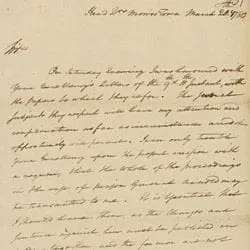 Head Qrs Morris Town March 20th 1780
Sir
On Saturday Evening I was honoured with
Your Excellency's Letters of the
the Papers to which they refer. The
subjects they respect will have my attention and
as soon as circumstances and
opportunity will permit. I can only trouble
Your Excellency upon the present occasion with
a request, that the whole of the proceedings
in the case of Major General Arnold may
be transmitted to me. It is essential that
I should have them, as the charges and
sentence against him must be published in
and the former are not